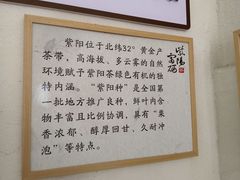 紫阳位于北纬32°黄金产
茶带，高海拔、多云雾的自然
环境赋予紫阳茶绿色有机的独
特内涵。“紫阳种”是全国第
一批地方推广良种，鲜叶内含
物丰富且比例协调，具有“栗
香浓郁、醇厚回甘、久耐冲
泡”等特点。
紫陽
富硒